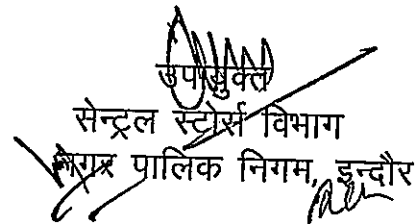 उपायुक्त
सेन्ट्रल स्टोर्स विभाग
नगर पालिक निगम, इन्दौर